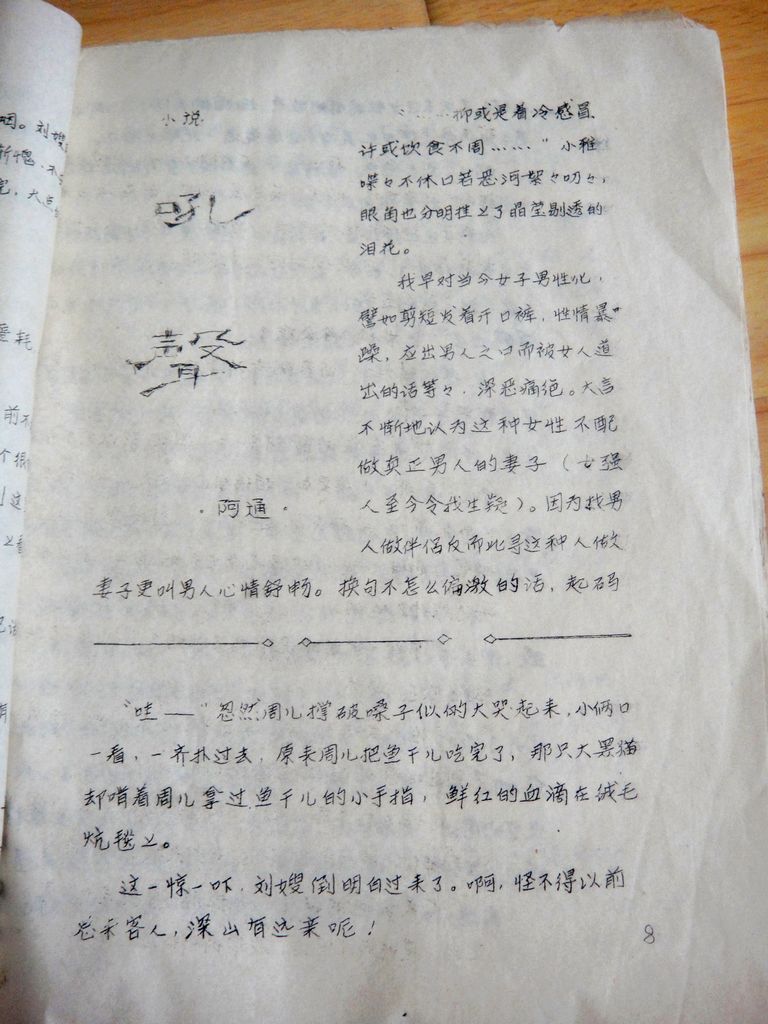 小说
吼
聲
·阿通·
“……抑或是着冷感冒
许或饮食不周……”小雅
喋々不休口若悬河絮々叨々，
眼角也分明挂上了晶莹剔透的
泪花。
我早对当今女子男性化，
譬如剪短发着开口裤，性情暴
躁，应出男人之口而被女人道
出的话等々，深恶痛绝。大言
不惭地认为这种女性不配
做真正男人的妻子（女强
人至今令我生疑）。因为找男
人做伴侣反而比寻这种人做
妻子更叫男人心情舒畅。换句不怎么偏激的话，起码
“哇——”忽然周儿撑破嗓子似的大哭起来，小俩口
一看，一齐扑过去，原来周儿把鱼干儿吃完了，那只大黑猫
却啃着周儿拿过鱼干儿的小手指，鲜红的血滴在绒毛
炕毯上。
这一惊一吓，刘嫂倒明白过来了。啊，怪不得以前
总来客人，深山有远亲呢！
8